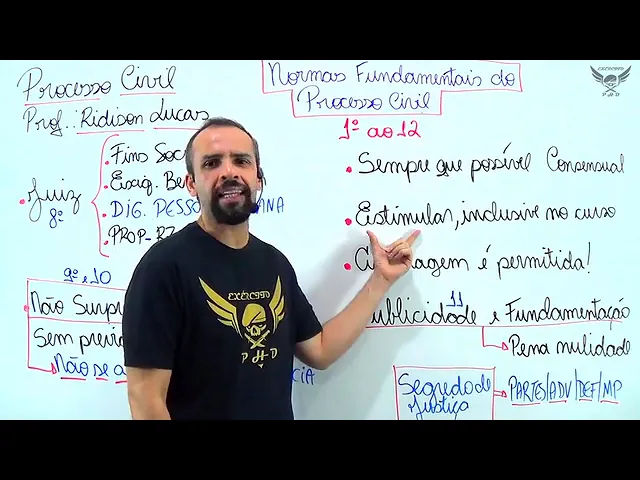 Processo Civil
Prof.: Ridison Lucas
Normas Fundamentais do
Processo Civil
1º ao 12
• Juiz
8º
• Fins Soc
• Exig. Be
• DIG. PESSO ANA
• PROP-RZ
• Sempre que possível Consensual
• Estimular, inclusive no curso
• agem é permitida!
9º e 10
Não Surpr
Sem prévi
Não se a CIA
11
ublicidade e Fundamentação
Pena nulidade
Segredo de
Justiça
PARTES/ADV/DEF/MP
EXÉRCITO
P H D
EXÉRCITO
P H D